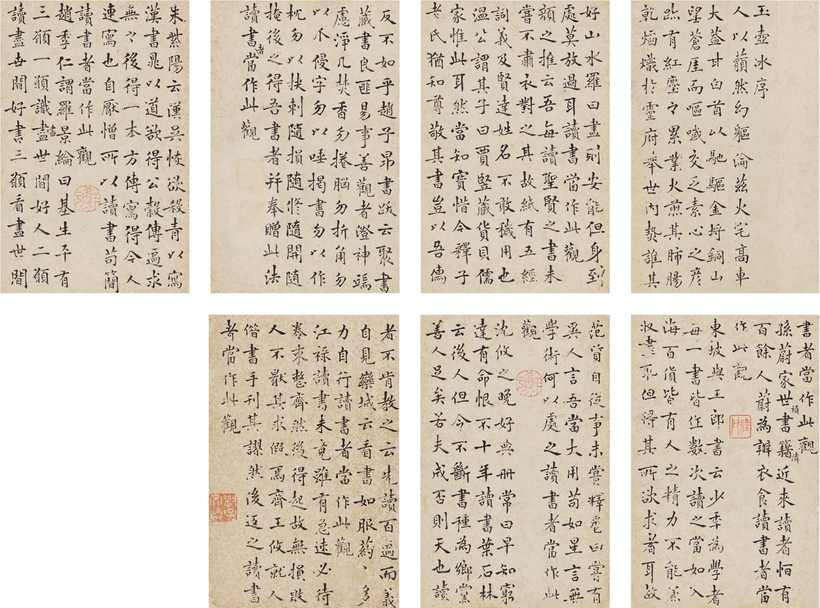 玉壺冰序
人以藐然幻軀淪茲火宅高車
大蓋甘白首以馳驅金埒銅山
望蒼崖而嘔噦爻之素心之彥
趾有紅塵之累業火煎其肺腸
乾焰熾於靈府舉世內熱誰其
好山水羅曰盡則安能但身到
處莫放過耳讀書當作此觀
顏之推云吾每讀聖賢之書未
嘗不肅衣對之其故紙有五經
詞義及賢達姓名不敢穢用也
溫公謂其子曰賈豎藏貨貝儒
家惟此耳然當知寶惜今釋子
老氏猶知尊敬其書豈以吾儒
反不如乎趙子昂書跋云聚書
藏書良匪易事善觀者澄神端
慮淨几焚香勿捲腦勿折角勿
以爪侵字勿以唾揭書勿以作
枕勿以挾刺隨損隨修隨開隨
掩後之得吾書者并奉贈此法
讀書者當作此觀
朱紫陽云漢吳恢欲殺青以寫
漢書晁以道欲得公穀傳遍求
無之後得一本方傳寫得今人
連寫也自厭憎所以讀書苟簡
讀書者當作此觀
趙季仁謂羅景綸曰某生平有
三願一願識盡世間好人二願
讀盡世間好書三願看盡世間
書者當作此觀
孫蔚家世積書籍近來讀者恒有
百餘人蔚為辦衣食讀書者當
作此觀
東坡與王郎書云少年為學者
每一書皆作數次讀之當如入
海百貨皆有人之精力不能兼
收盡取但得其所欲求者耳故
范質自從事未嘗釋卷曰嘗有
異人言吾當大用苟如是言無
學術何以處之讀書者當作此
觀
沈攸之晚好典冊常曰早知窮
達有命恨不十年讀書葉石林
云後人但令不斷書種為鄉黨
善人足矣若夫成否則天也讀
者不肯教之云先讀百遍而義
自見欒城云看書如服藥藥多
力自行讀書者當作此觀
江祿讀書未竟雖有急速必待
卷束整齊然後得起故無損敗
人不厭其求假焉齊王攸就人
借書手刊其謬然後返之讀書
者當作此觀